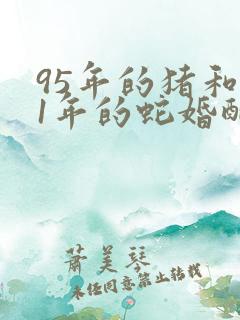 95年的猪和
1年的蛇婚配
萧美琴
未经同意禁止转载